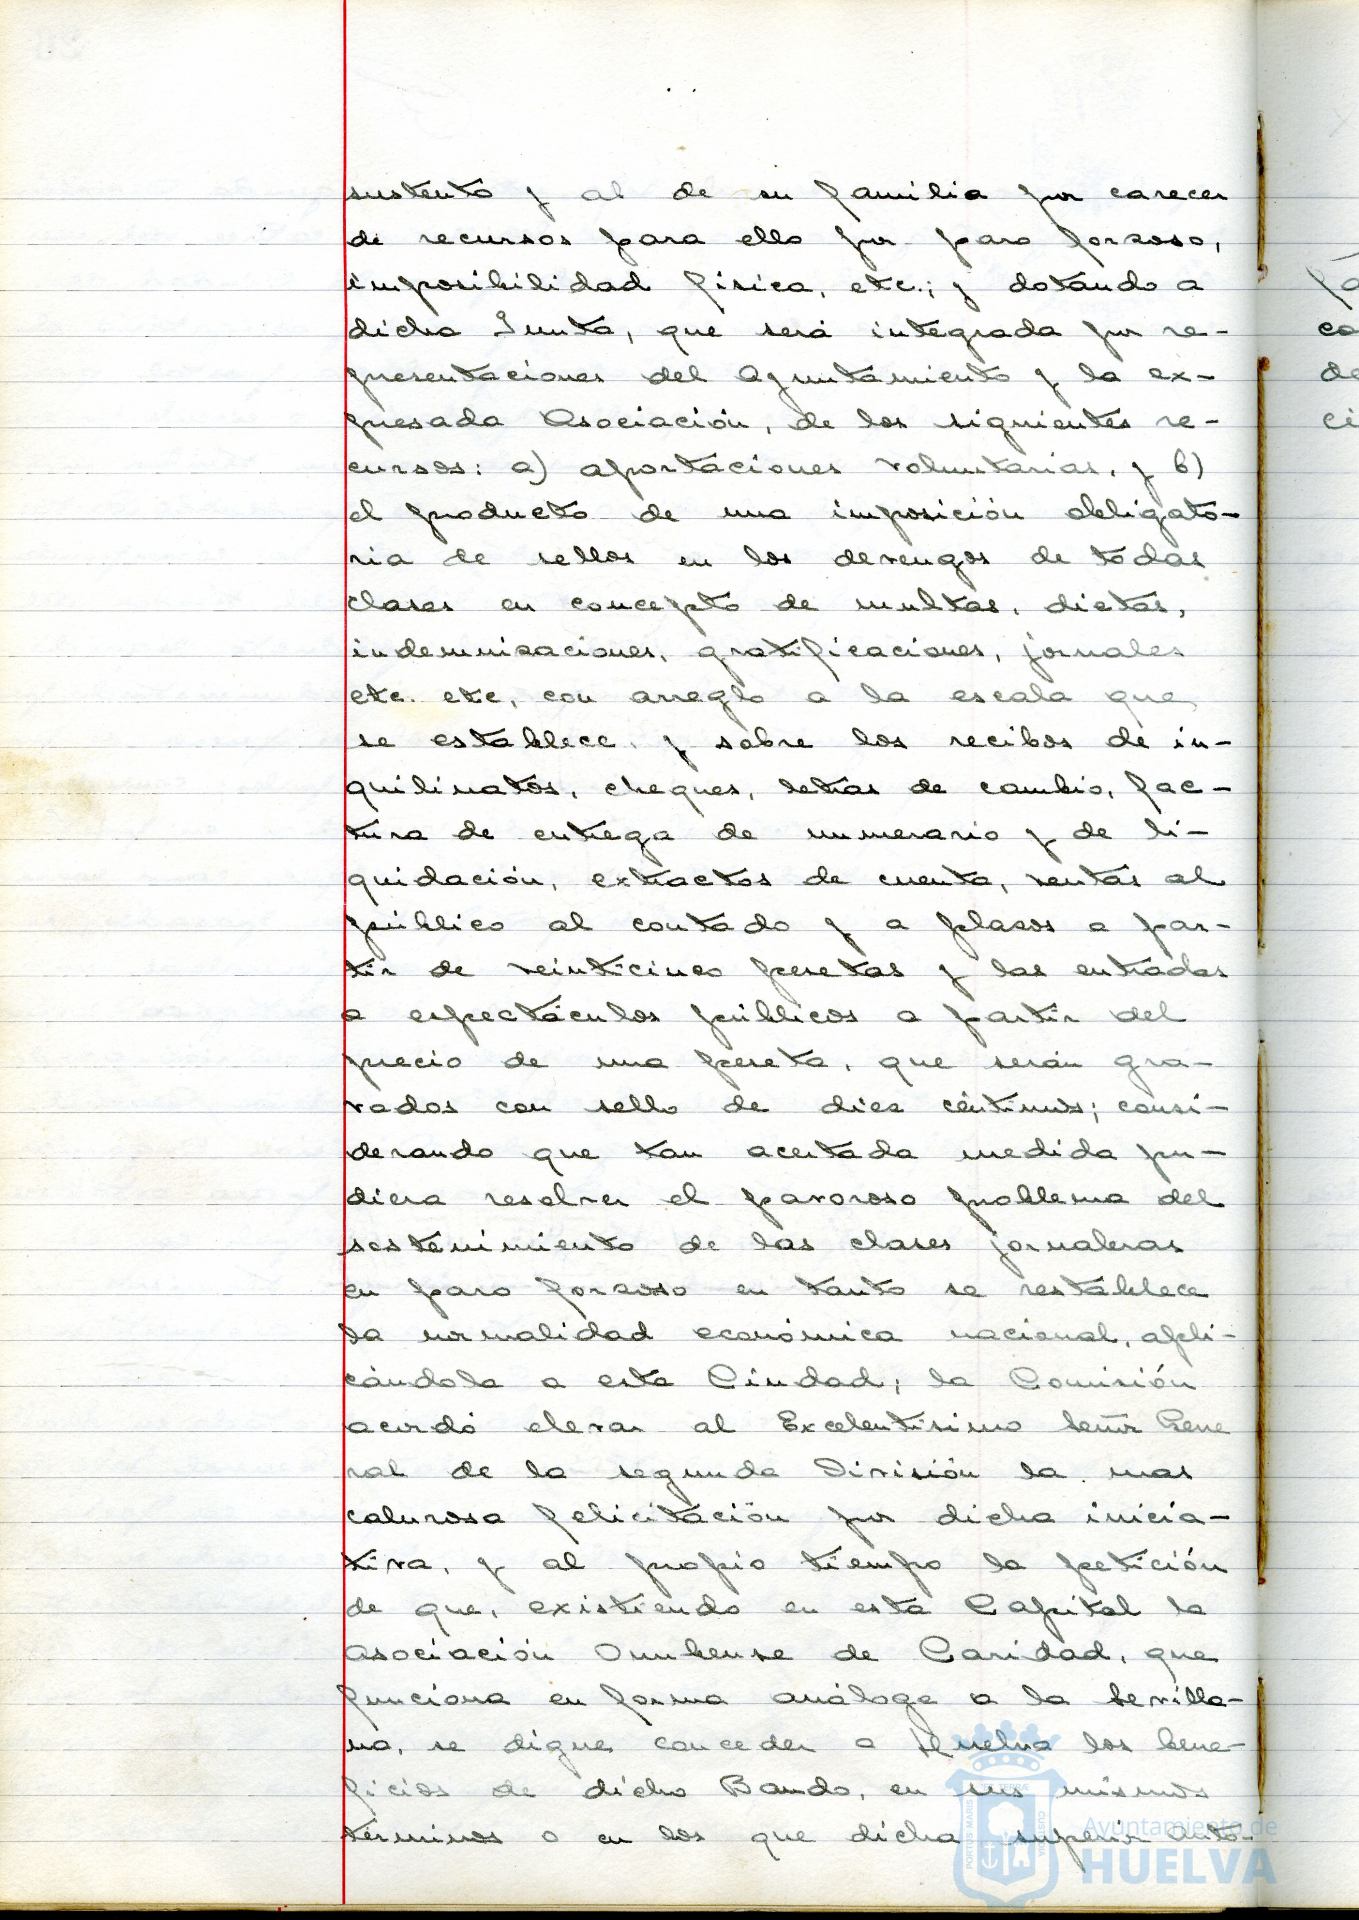 sustento y al de su familia por carecer
de recursos para ello por paro forzoso,
imposibilidad física, etc.; y dotando a
dicha Junta, que será integrada por re-
presentaciones del Ayuntamiento y la ex-
presada Asociación, de los siguientes re-
cursos: a) aportaciones voluntarias, y b)
el producto de una imposición obligato-
ria de sellos en los devengos de todas
clases en concepto de multas, dietas,
indemnizaciones, gratificaciones, jornales
etc. etc, con arreglo a la escala que
se establece, y sobre los recibos de in-
quilinatos, cheques, letras de cambio, fac-
tura de entrega de numerario y de li-
quidación, extractos de cuenta, ventas al
público al contado y a plazos a par-
tir de veinticinco pesetas y las entradas
a espectáculos públicos a partir del
precio de una peseta, que serán gra-
vados con sello de diez céntimos; consi-
derando que tan acertada medida pu-
diera resolver el pavoroso problema del
sostenimiento de las clases jornaleras
en paro forzoso en tanto se restablece
la normalidad económica nacional, apli-
cándola a esta Ciudad; la Comisión
acordó elevar al Excelentísimo Señor Gene
ral de la segunda División la mas
calurosa felicitación por dicha inicia-
tiva, y al propio tiempo la petición
de que, existiendo en esta Capital la
Asociación Onubense de Caridad, que
funciona en forma análoga a la Sevilla-
na, se digne conceder a Huelva los bene-
ficios de dicho Bando, en sus mismos
términos o en los que dicha superior Auto-
Ayuntamiento de
HUELVA
PORTUS MARIS
ET TERRAE
CUSTODIA
co
de
ci